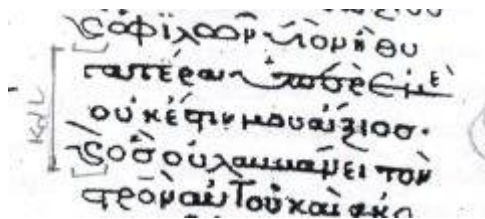 ϗ ὁ φϊλῶν ϋἱὸν ἢ θυ
γατέραν ὑπὲρ ἐμὲ
οὐκ ἔστιν μου ἄξιοσ·
ϗ ὃσ οὐ λαμβάνει τὸν
αὐτοῦ καὶ